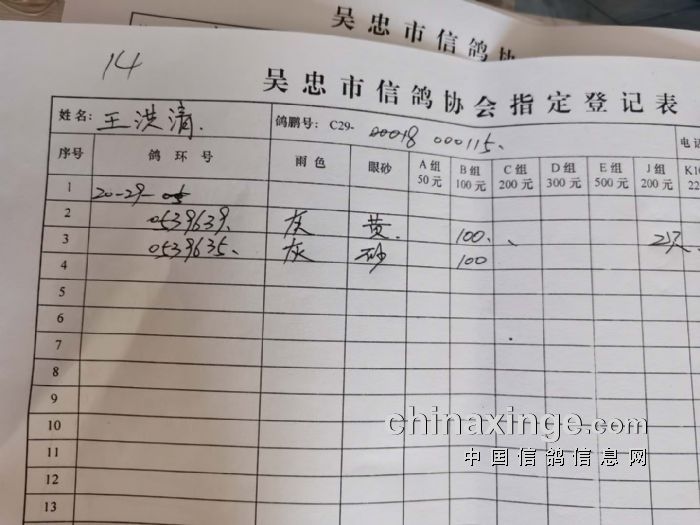 吴忠市信鸽协
14
吴忠市信鸽协会指定登记表
姓名: 王洪清. 鸽鹏号: C29- 00018 000115. 电话
序号 鸽环号 雨色 眼砂 A组 50元 B组 100元 C组 200元 D组 300元 E组 500元 J组 200元 K1 22
1 20-29-05
2 0539639. 灰 黄. 100.
3 0539635. 灰 砂 100
4
5
6
7
8
9
10
11
12
13
chinaxinge.com
中国信鸽信息网